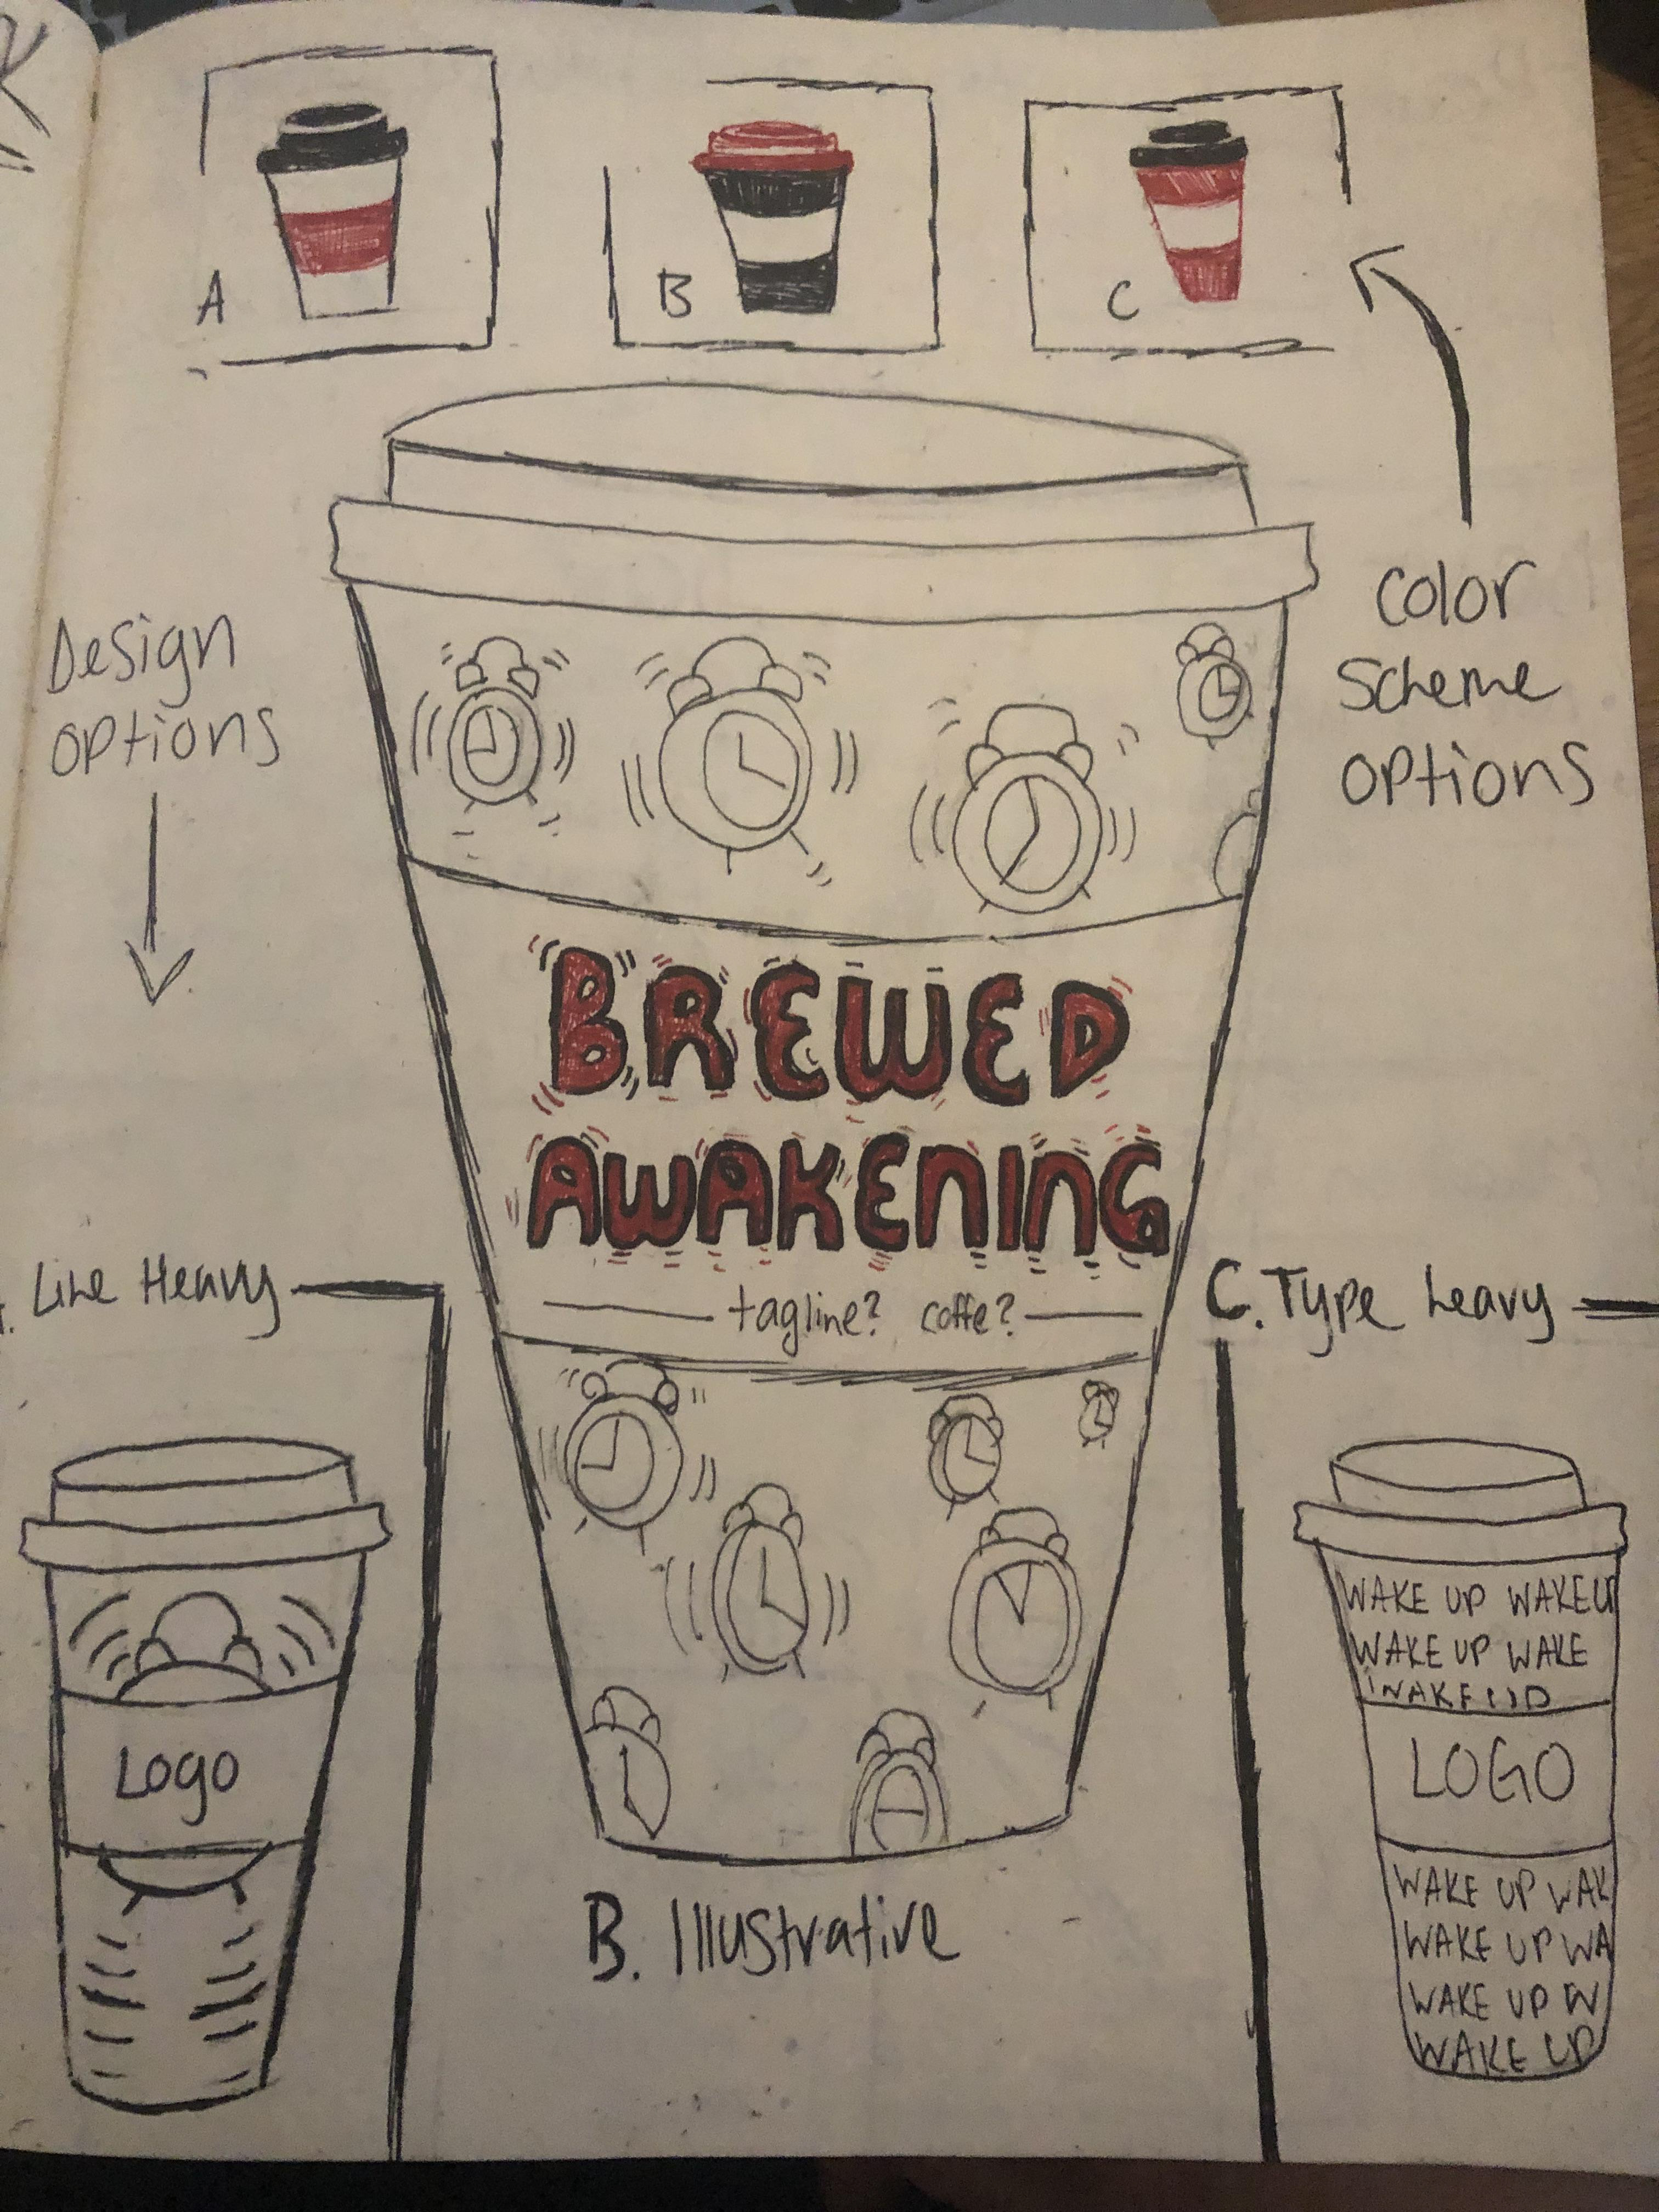 A
B
C
Design
options
Color
Scheme
options
BREWED
AWAKENING
tagline? coffe?
. Line Heavy
C. Type heavy
Logo
WAKE UP WAKE U
WAKE UP WAKE
WAKE UP
LOGO
WAKE UP WAK
WAKE UP WA
WAKE UP W
WAKE UP
B. Illustrative